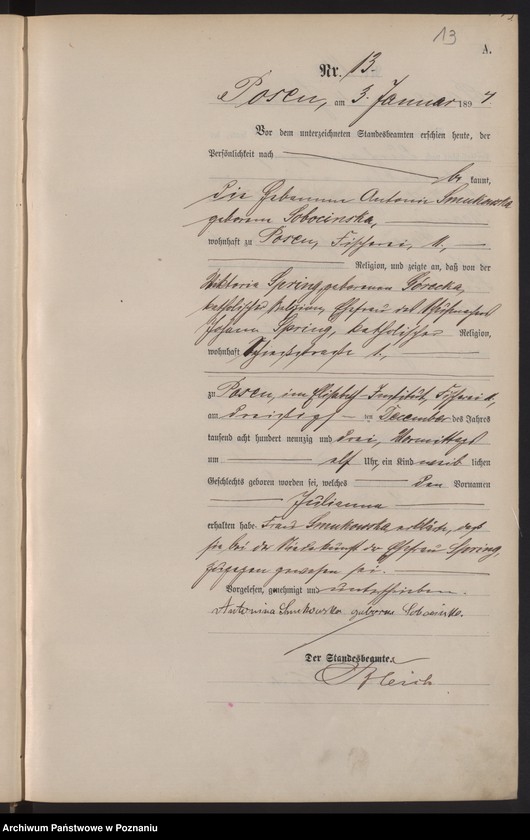 13
A.
Nr. 13.
Posen, am 3. Januar 1894.
Vor dem unterzeichneten Standesbeamten erschien heute, der
Persönlichkeit nach
be kannt,
die Hebamme Antonie Smukowska
geborene Sobocinska,
wohnhaft zu Posen, Fischerei
Religion, und zeigte an, daß von der
Viktoria Spring, geborenen Górecka,
katholischer Religion, Ehefrau des
Johann Spring, katholischer Religion,
wohnhaft
zu Posen, im Elisabeth-Institut, Fischerei
am dreißigsten Dezember des Jahres
tausend acht hundert neunzig und drei, Vormittags
um elf Uhr, ein Kind weib lichen
Geschlechts geboren worden sei, welches den Vornamen
Julianna
erhalten habe. Frau Smukowska erklärte, daß
sie bei der Niederkunft der Ehefrau Spring
zugegen gewesen sei.
Vorgelesen, genehmigt und unterschrieben.
Antonina Smukowska geborene Sobocinska.
Der Standesbeamte.
Archiwum Państwowe w Poznaniu